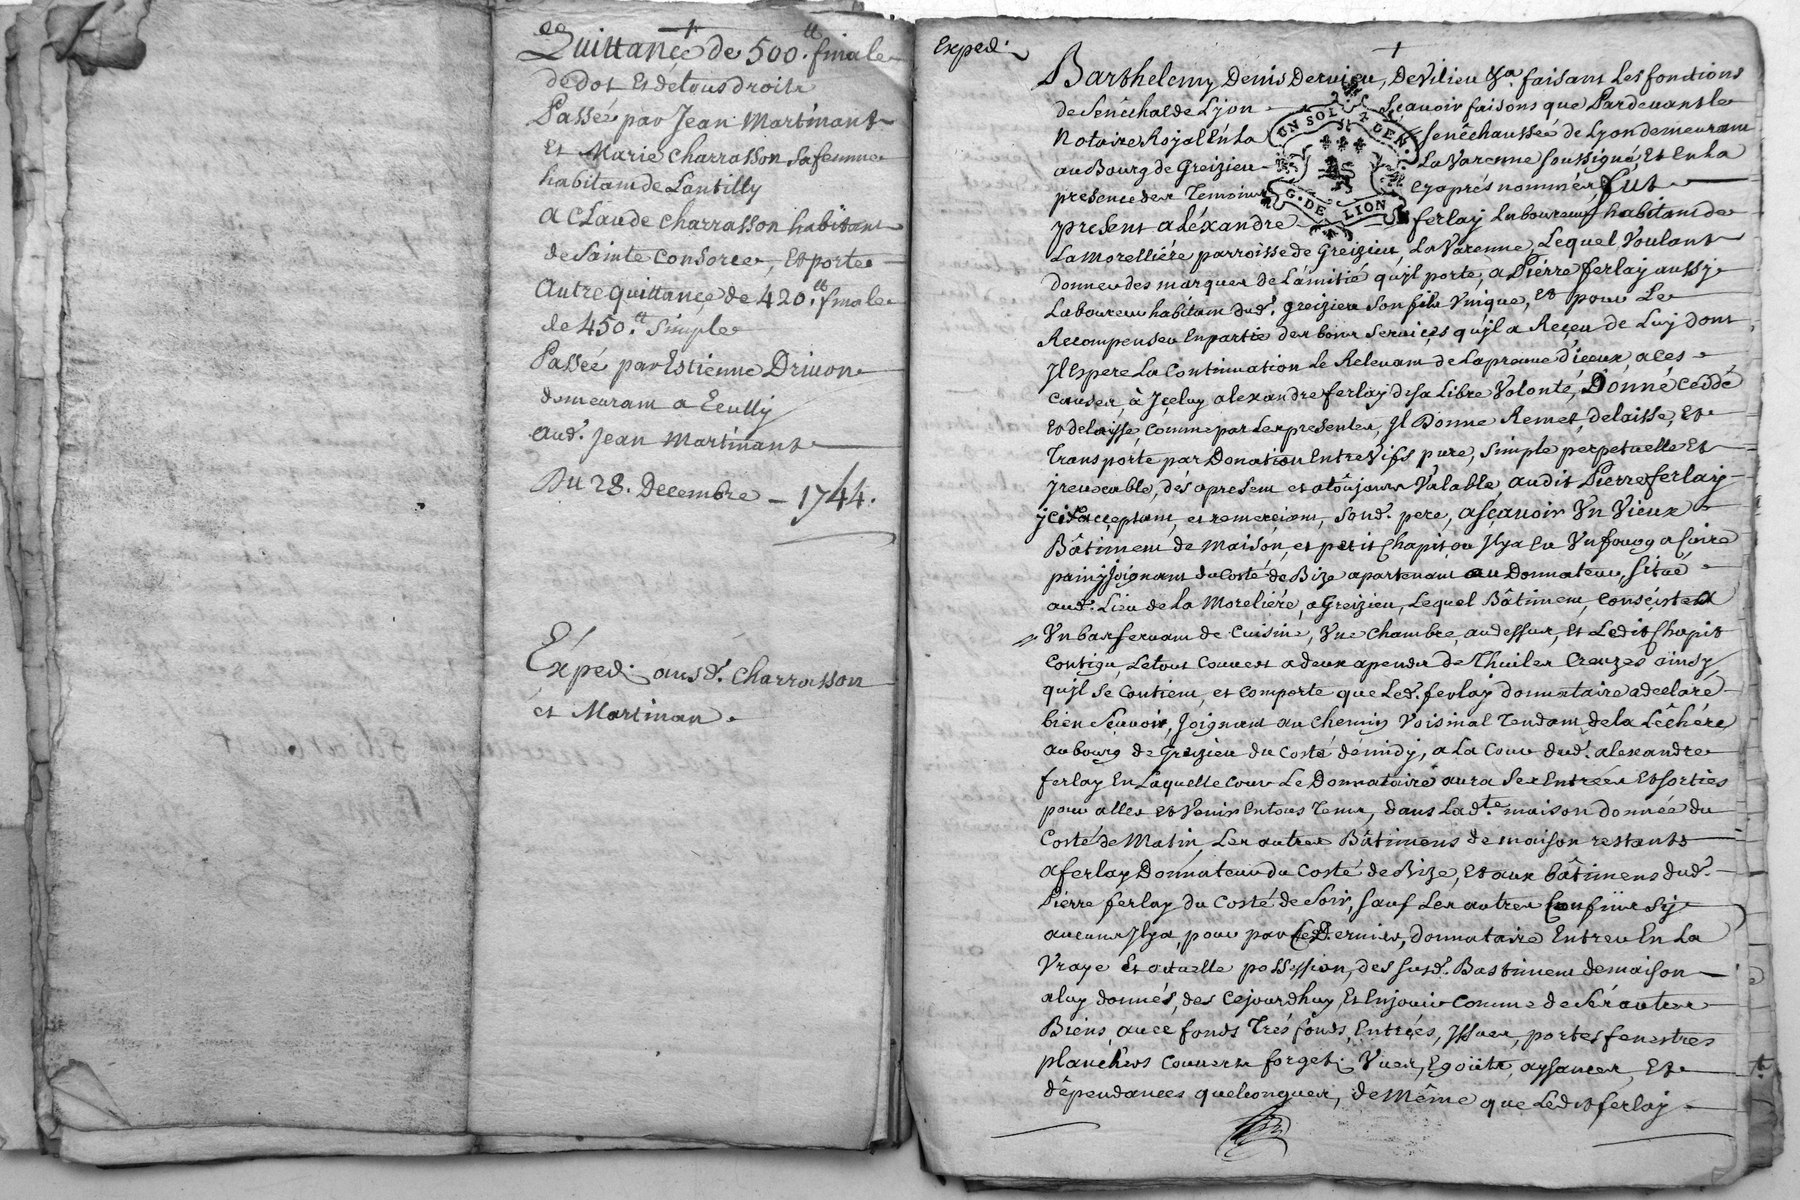 Quittance de 500.tt finale
de dot Et de tous droits
Passée par Jean Martinant
Et Marie charrasson sa femme
habitans de Lantilly
a Claude charrasson habitant
de Sainte Consorce, Et porte
autre quittance de 420.tt finale
de 450.tt Simple
Passée par Estienne Drivon
demeurant a Ecully
aud. Jean Martinant
Du 28. Decembre - 1744.
Exped. ausd. Charrasson
et Martinan.
Exped.
Barthelemy Denis Dervieu, De Vilieu faisant Les fonctions
de Senéchal de Lyon Sçavoir faisons que Pardevant le
Notaire Royal En La Senéchaussée de Lyon demeurant
au Bourg de Greizieu La Varenne soussigné Et En La
presence des Temoins cy aprés nommés, fut
present aléxandre ferlay Laboureur habitant de
La Morelliére parroisse de Greizieu La Varenne, Lequel Voulant
donner des marques de L'amitié qu'jl porte, a Piérre ferlay aussy
Laboureur habitant dud. greizieu son fils Vnique, Et pour Le
Recompenser En partie des bons Services qu'jl a Reçeu de Luy dont
Jl Espere La Continuation Le Relevant de La preuve d'iceux, a ces
Causes, à Jceluy alexandre ferlay de sa Libre Volonté, Donné Ceddé
Et delaissé, Comme par Les presentes, Jl Donne Remet, delaisse, Et
Transporte par Donation Entre Vifs pure, Simple perpetuelle Et
jrevocable, dés apresent et a toûjours Valable, audit Pierre ferlay
jcy acceptant, et remerciant, Sond. pere, asçavoir Vn Vieux
Bâtiment de maison, et petit Chapit ou Jl y a Eu Vn fourg a Cuire
pain, Joignant du Costé de Bize apartenant au Donnateur, Situé
aud. Lieu de la Moreliére, a Greizieu, Lequel Bâtiment, Consiste a
Vn bas servant de Cuisine, Vne Chambre, au dessus, Et Ledit Chapit
Contigu, Le tout Couvert a deux apendis de Thuiles Creuzes ainsy
qu'jl se Contient, et Comporte que Led. ferlay donnataire a declaré
bien sçavoir, Joignant au Chemin Voisinal Tendant de la Lêchére,
au bourg de Greizieu du Costé démidy, a La Cour dud. alexandre
ferlay En Laquelle Cour Le Donnataire aura Ses Entrées Et sorties
pour aller Et Venir En tous Tems, dans Lad.te maison donnée du
Costé de Matin, Les autres Bâtimens de maison restants
a ferlay Donnateur du Costé de Bize, Et aux bâtimens dud.
Pierre ferlay du Costé de Soir, Sauf Les autres Confins sy
aucuns Jl y a, pour par Ce Dernier, donnataire Entrer En La
Vraye Et actuelle possession, des susd. Bastimens de maison
a luy donnés, des Cejourdhuy, Et En jouir Comme de Sés autres
Biens, avec fonds Trés fonds, Entrées, Jssues, portes fenestres
planchers Couverts forgets Vues, Egoûts, aysances, Et
dêpendances quelconques, de Même que Ledit ferlay
UN SOL 4 DEN.
G. DE LION